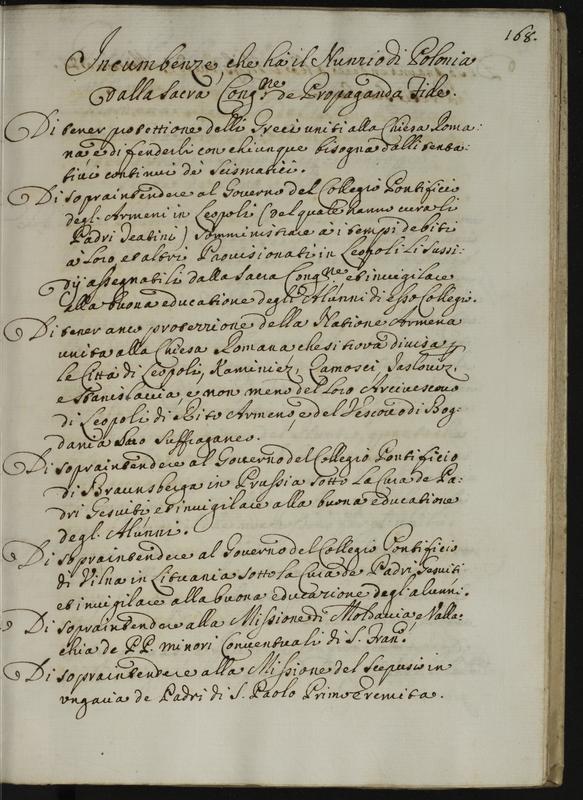 168.
Incumbenze, che hà il Nunzio di Polonia
dalla Sacra Cong.ne de Propaganda Fide.
Di tener protettione delli Greci uniti alla Chiesa Roma:
na e difenderli con chiunque bisogna dalli tenta:
tivi continui de' Scismatici.
Di sopraintendere al Governo del Collegio Pontificio
degl' Armeni in Leopoli (del quale hanno cura li
Padri Teatini) somministrare a i tempi debiti
a loro et altri Provisionati in Leopoli li sussi:
dij assegnabili dalla Sacra Cong.ne et invigilare
alla buona educatione degli Alunni di esso Collegio.
Di tener anco protezzione della Natione Armena
unita alla Chiesa Romana che si trova divisa p
le Città di Leopoli, Kaminiez, Zamosci, Jaslowiz,
e Stanislavia, e non meno del loro Arcivescovo
di Leopoli di Rito Armeno, e del Vescovo di Bog:
dania suo suffraganeo.
Di sopraintendere al Governo del Collegio Pontificio
di Braunsberga in Prussia sotto la Cura de Pa:
dri Gesuiti et invigilare alla buona educatione
degl' Alunni.
Di sopraintendere al Governo del Collegio Pontificio
di Vilna in Lituania sotto la Cura de Padri Gesuiti
et invigilare alla buona educazione degl' alunni.
Di sopraintendere alla Missione di Moldavia, e Valla:
chia de PP. minori Conventuali di S. Fran.
Di sopraintendere alla Missione del Scepusio in
ungaria de Padri di S. Paolo Primo Eremita.